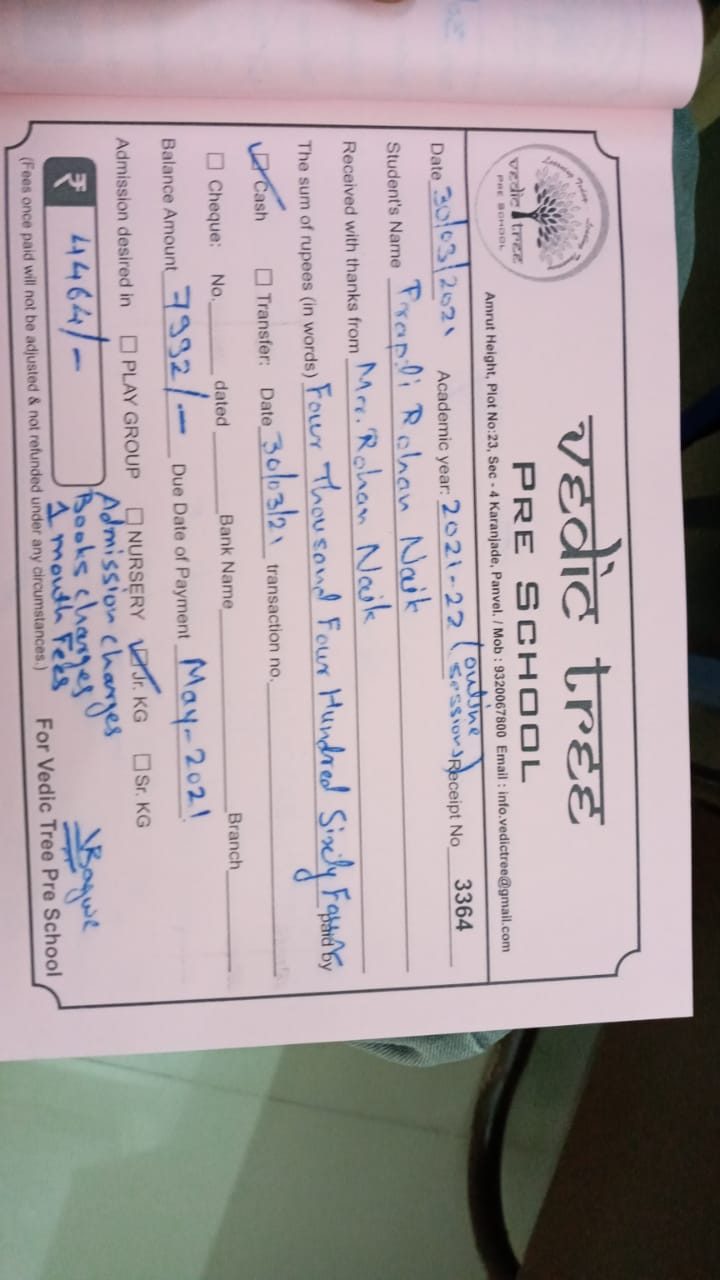 vedic tree
PRE SCHOOL
vedic tree
PRE SCHOOL
Amrut Height, Plot No:23, Sec - 4 Karanjade, Panvel. / Mob : 9320067800 Email : info.vedictree@gmail.com
Date 30/03/2021 Academic year: 2021-22 (online sessions) Receipt No 3364
Student's Name Prapti Rohan Naik
Received with thanks from Mr. Rohan Naik
The sum of rupees (in words) Four Thousand Four Hundred Sixty Four paid by
Cash Transfer: Date 30/03/21 transaction no.
Cheque: No. dated Bank Name Branch
Balance Amount 7992/- Due Date of Payment May-2021
Admission desired in PLAY GROUP NURSERY Jr. KG Sr. KG
Admission charges
Books charges
1 month Fees
₹ 4464/-
Bagwe
(Fees once paid will not be adjusted & not refunded under any circumstances.) For Vedic Tree Pre School